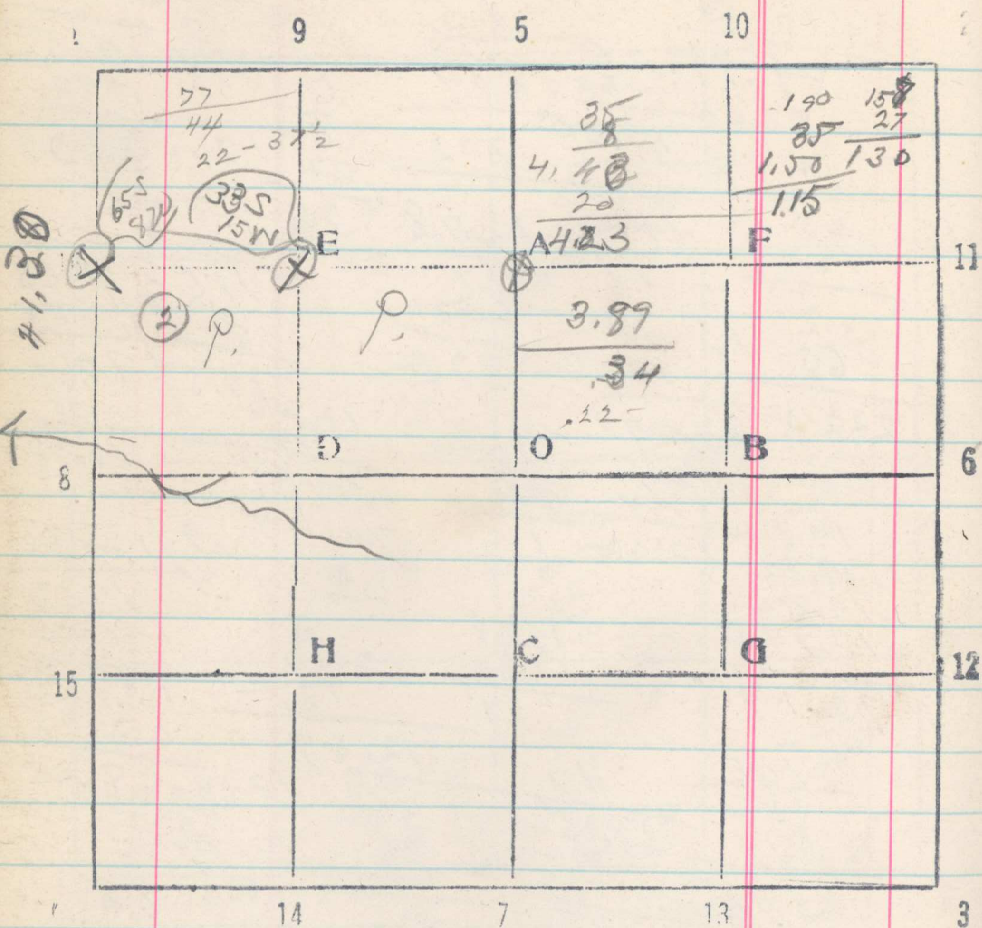 9 5 10
77
44
22 - 37½
65S
9W
33S
15W
35
8
4,43
20
4.23
.190
35
1.50
1.15
158
27
130
41,38
E A F 11
2 P. P.
3.89
.34
.22-
8 D O B 6
15 H C G 12
14 7 13 3